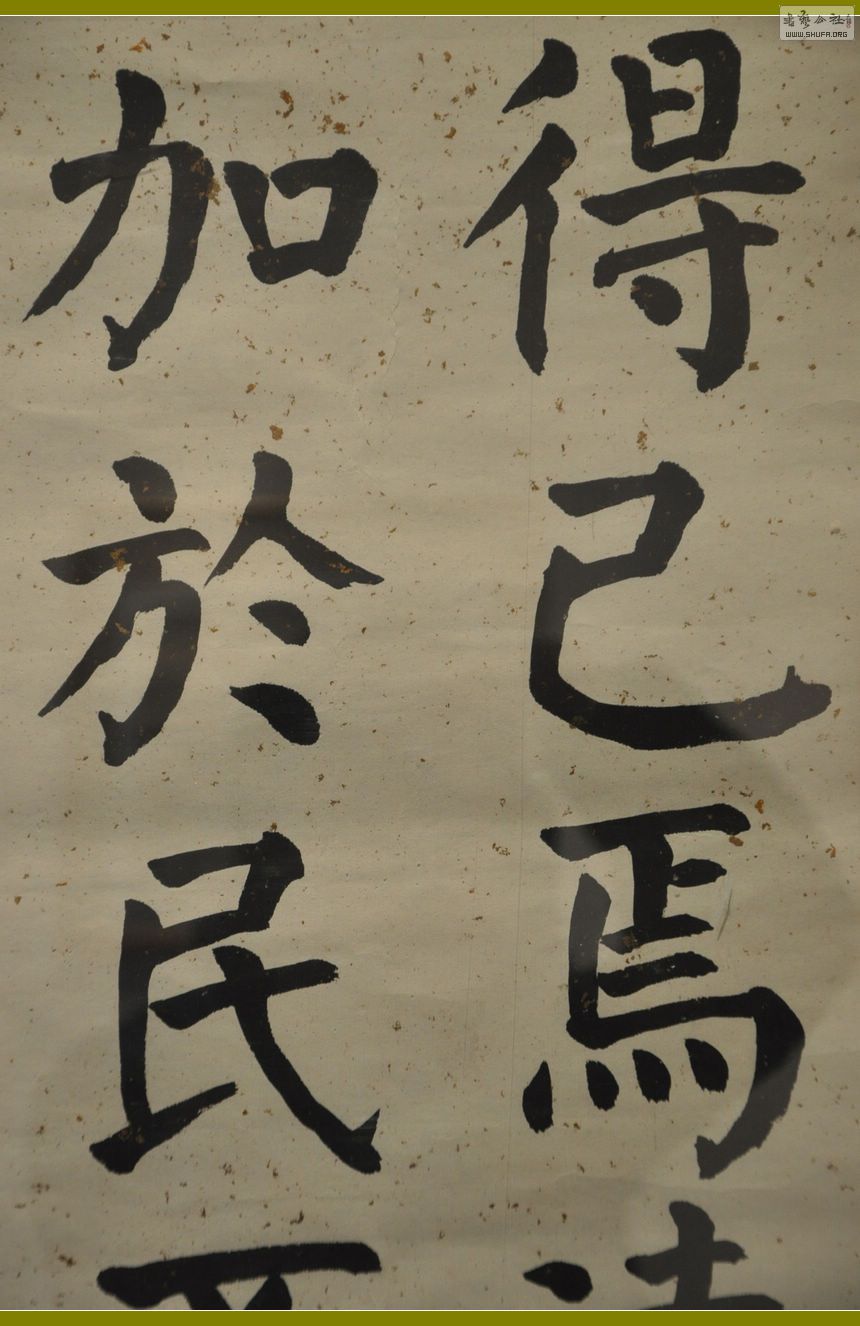 得己焉
加於民
書藝公社
WWW.SHUFA.ORG